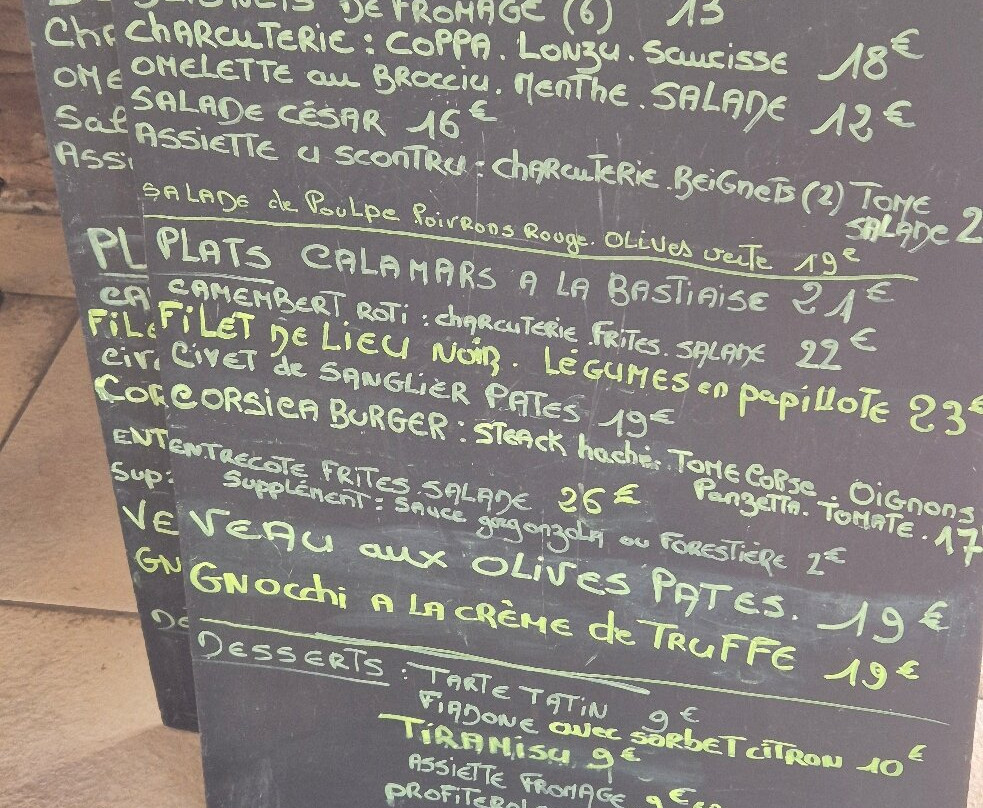 DE FROMAGE (6) 13
CHARCUTERIE : COPPA. LONZU. SAUCISSE 18€
OMELETTE au BROCCIU. MENTHE. SALADE 12€
SALADE CÉSAR 16€
ASSIETTE U SCONTRU : CHARCUTERIE. BEIGNETS (2) TOME
SALADE 2
SALADE de POULPE POIVRONS ROUGE. OLIVES verte 19€
PLATS CALAMARS A LA BASTIAISE 21€
CAMEMBERT ROTI : CHARCUTERIE. FRITES. SALADE 22€
FILET DE LIEU NOIR. LÉGUMES en papillote 23€
CIVET de SANGLIER PATES 19€
CORSICA BURGER : STEACK haché. TOME CORSE. OIGNONS
PANZETTA. TOMATE. 17
ENTRECOTE FRITES. SALADE 26€
SUPPLÉMENT : SAUCE gorgonzola ou FORESTIÈRE 2€
VEAU aux OLIVES PATES. 19€
GNOCCHI A LA CRÈME de TRUFFE 19€
DESSERTS : TARTE TATIN 9€
FIADONE avec SORBET CITRON 10€
TIRAMISU 9€
ASSIETTE FROMAGE 9€